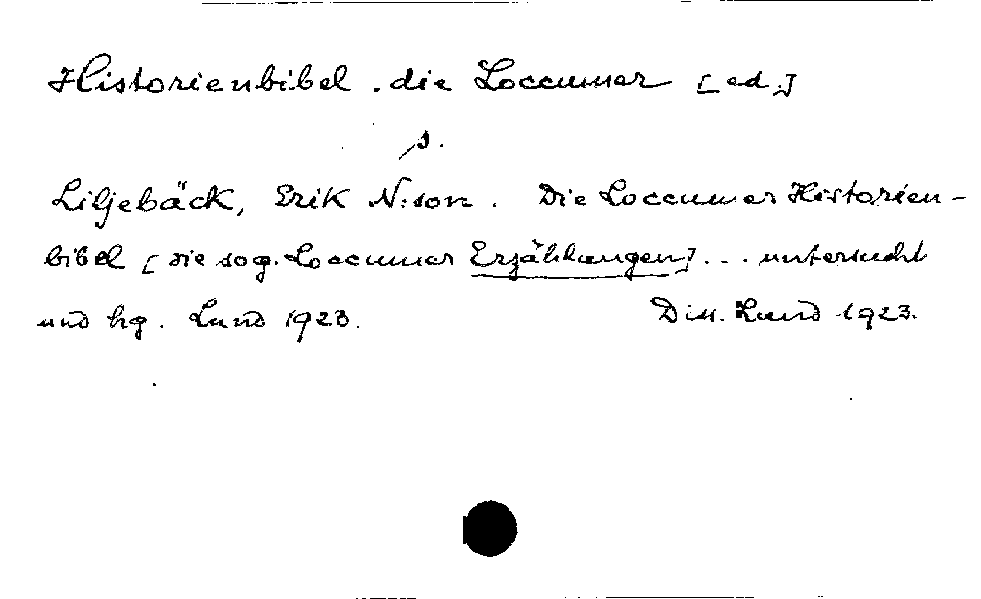 Historienbibel . die Loccumer [ed.]
s.
Liljebäck, Erik N:son . Die Loccumer Historien-
bibel [die sog. Loccumer Erzählungen] ... untersucht
und hrg. Lund 1923. Diss. Lund 1923.